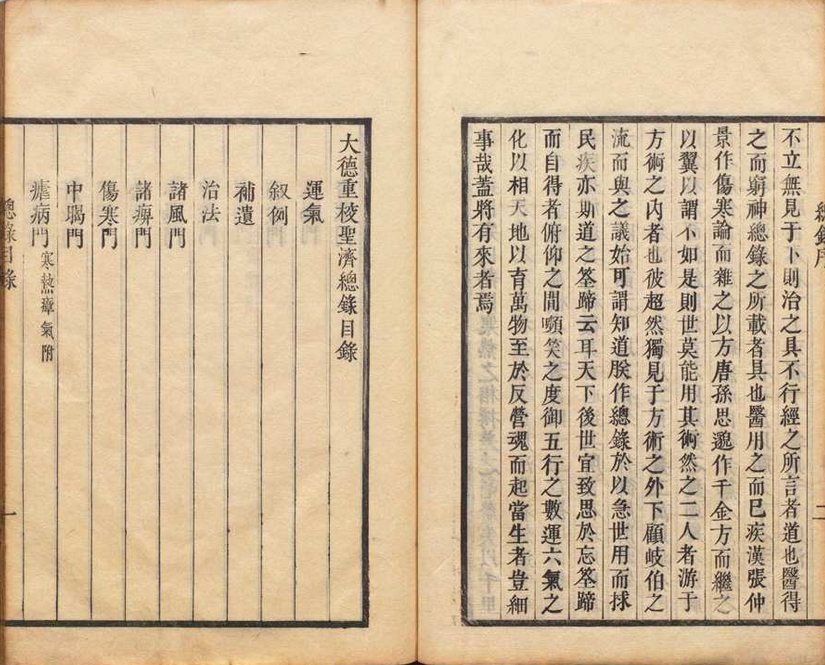 總錄序
二
不立無見于下則治之具不行經之所言者道也醫得
之而窮神總錄之所載者具也醫用之而已疾漢張仲
景作傷寒論而雜之以方唐孫思邈作千金方而繼之
以翼以謂不如是則世莫能用其術然之二人者游于
方術之內者也彼超然獨見于方術之外下顧岐伯之
流而與之議始可謂知道朕作總錄於以急世用而捄
民疾亦斯道之筌蹄云耳天下後世宜致思於忘筌蹄
而自得者俯仰之間嚬笑之度御五行之數運六氣之
化以相天地以育萬物至於反營魂而起當生者豈細
事哉蓋將有來者焉
大德重校聖濟總錄目錄
運氣
叙例
補遺
治法
諸風門
諸痹門
傷寒門
中暍門
瘧病門 寒熱瘴氣附
總錄目錄
一